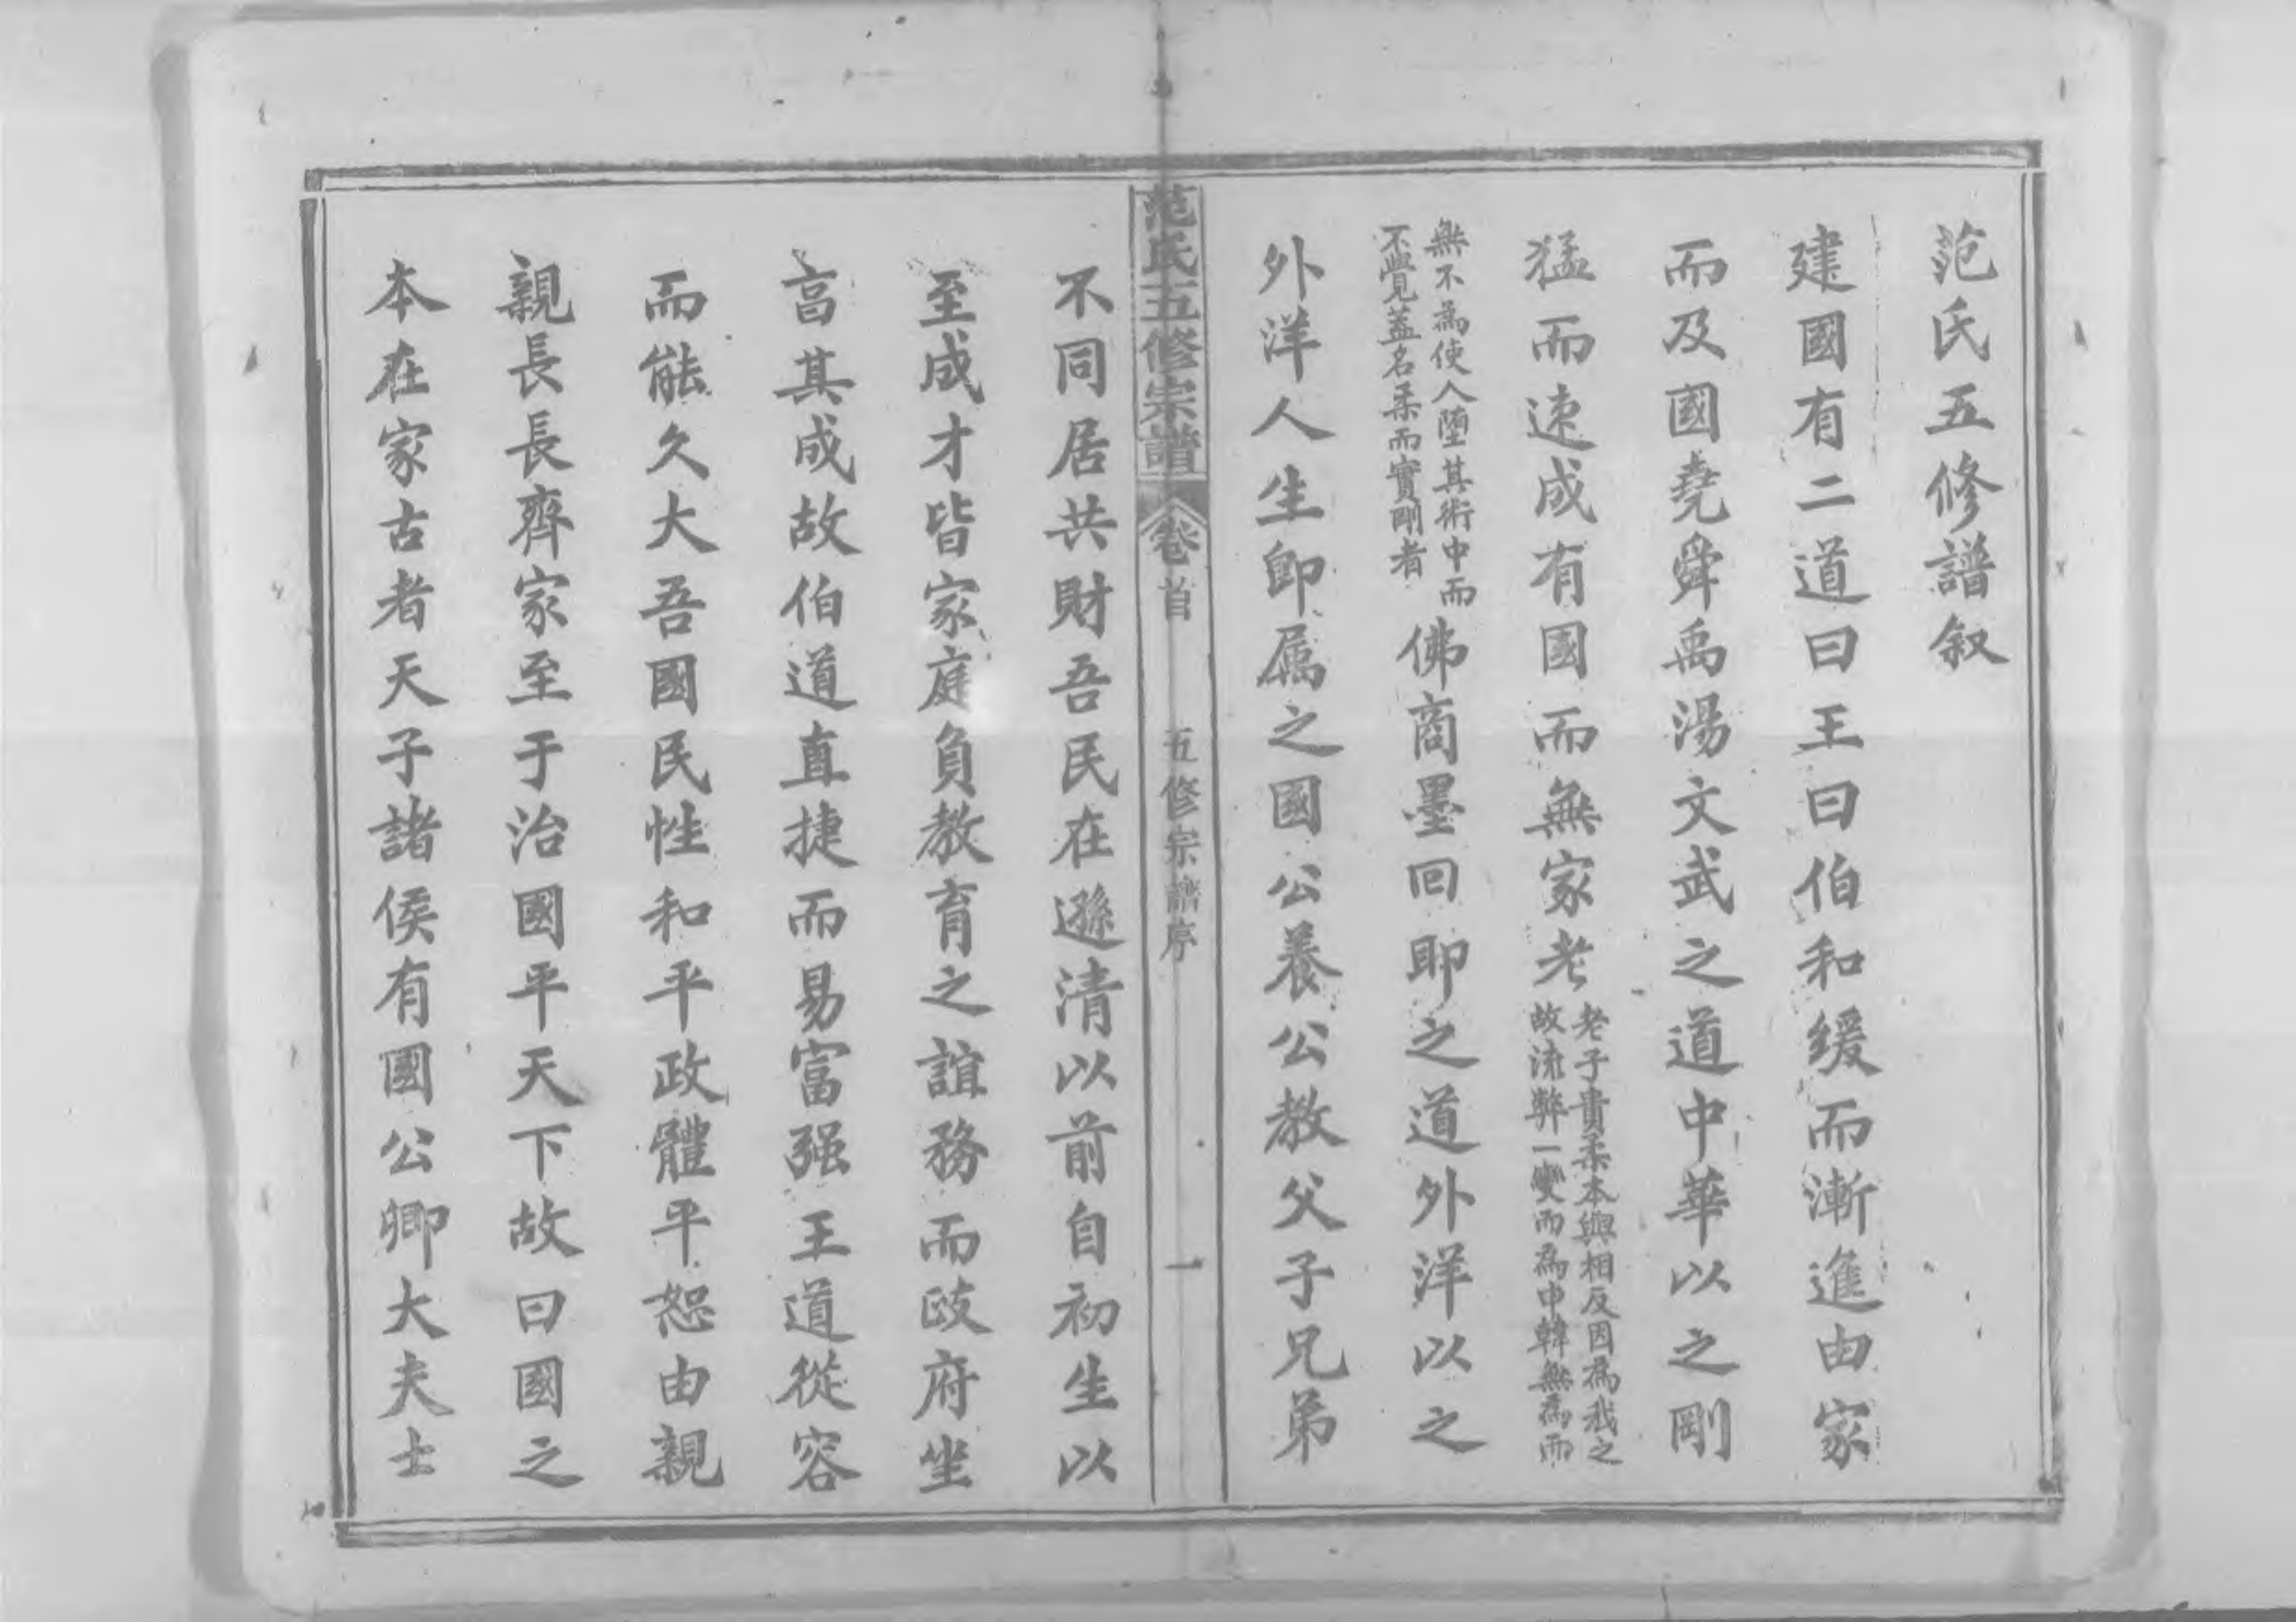 范氏五修譜叙
建國有二道曰王曰伯和緩而漸進由家
而及國堯舜禹湯文武之道中華以之剛
猛而速成有國而無家老
老子貴柔本與相反因為我之
故流弊一變而為申韓無為而
無不為使人墮其術中而
不覺蓋名柔而實剛者
佛商墨回耶之道外洋以之
外洋人生即屬之國公養公教父子兄弟
范氏五修宗譜
卷首
五修宗譜序
一
不同居共財吾民在遜清以前自初生以
至成才皆家庭負教育之誼務而政府坐
言其成故伯道直捷而易富强王道從容
而能久大吾國民性和平政體平恕由親
親長長齊家至于治國平天下故曰國之
本在家古者天子諸侯有國公卿大夫士